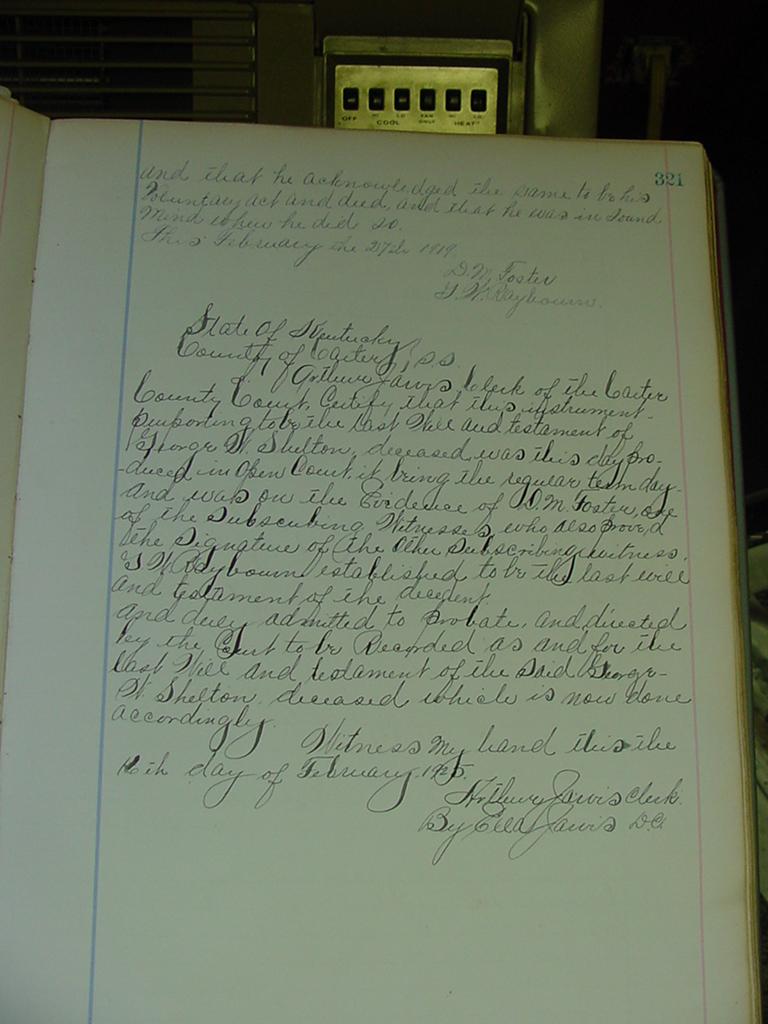 OFF HI LO FAN ONLY HI LO
COOL HEAT
321
and that he acknowledged the same to be his
Voluntary act and deed, and that he was in Sound
Mind when he did so.
This February the 27th 1919.
D. M. Foster
G. W. Raybourn.
State Of Kentucky,
County of Carter, S.S.
Arthur Jarvis, Clerk of the Carter
County Court, Certify that this instrument
purporting to be the last Will and testament of
George W. Shelton, deceased, was this day pro-
-duced in Open Court, it bring the regular term day
and was on the Evidence of D. M. Foster, one
of the Subscribing Witnesses, who also proved
the Signature of the Other Subscribing witness,
G W Raybourn established to be the last will
and testament of the decedent
and duly admitted to Probate, and directed
by the Court to be Recorded as and for the
last Will and testament of the said George-
W. Shelton, deceased which is now done
accordingly.
Witness My hand this the
16th day of February, 1925.
Arthur Jarvis Clerk.
By Ella Jarvis D.C.